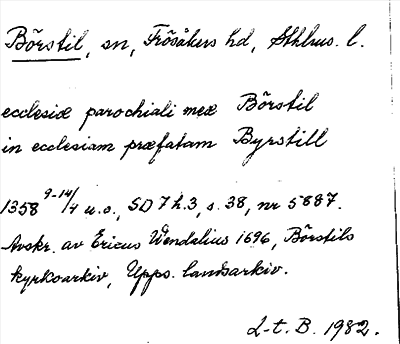 Börstil, sn, Frösåkers hd, Sthlms. l.
ecclesiæ parochiali meæ Börstil
in ecclesiam præfatam Byrstill
1358 9-14/4 u.o., SD 7 h.3, s. 38, nr 5887.
Avskr. av Ericus Wendelius 1696, Börstils
kyrkoarkiv, Upps. landsarkiv.
L-t. B. 1982.